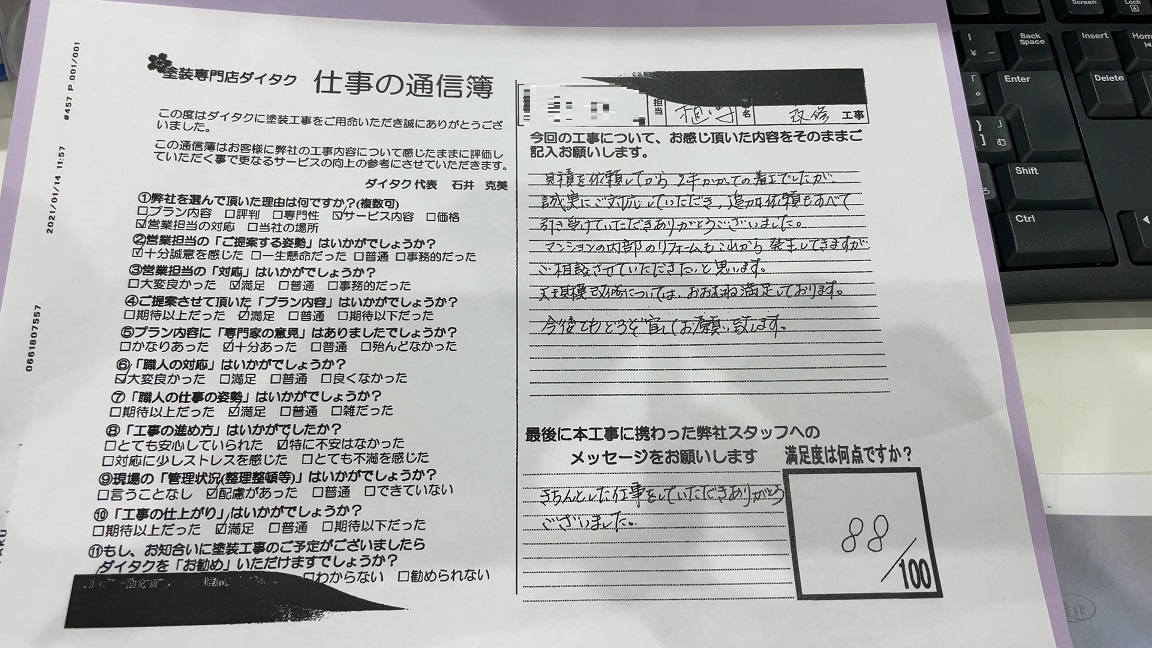 #457 P 001/001
2021/01/14 11:57
0661807557
塗装専門店ダイタク 仕事の通信簿
この度はダイタクに塗装工事をご用命いただき誠にありがとうござ
いました。
この通信簿はお客様に弊社の工事内容について感じたままに評価し
ていただく事で更なるサービスの向上の参考にさせていただきます。
ダイタク代表 石井 克美
①弊社を選んで頂いた理由は何ですか?(複数可)
□プラン内容 □評判 □専門性 ☑サービス内容 □価格
☑営業担当の対応 □当社の場所
②営業担当の「ご提案する姿勢」はいかがでしょうか?
☑十分誠意を感じた □一生懸命だった □普通 □事務的だった
③営業担当の「対応」はいかがでしょうか?
□大変良かった ☑満足 □普通 □事務的だった
④ご提案させて頂いた「プラン内容」はいかがでしょうか?
□期待以上だった ☑満足 □普通 □期待以下だった
⑤プラン内容に「専門家の意見」はありましたでしょうか?
□かなりあった ☑十分あった □普通 □殆んどなかった
⑥「職人の対応」はいかがでしょうか?
☑大変良かった □満足 □普通 □良くなかった
⑦「職人の仕事の姿勢」はいかがでしょうか?
□期待以上だった ☑満足 □普通 □雑だった
⑧「工事の進め方」はいかがでしたか?
□とても安心していられた ☑特に不安はなかった
□対応に少しストレスを感じた □とても不満を感じた
⑨現場の「管理状況(整理整頓等)」はいかがでしょうか?
□言うことなし ☑配慮があった □普通 □できていない
⑩「工事の仕上がり」はいかがでしょうか?
□期待以上だった ☑満足 □普通 □期待以下だった
⑪もし、お知合いに塗装工事のご予定がございましたら
ダイタクを「お勧め」いただけますでしょうか?
□わからない □勧められない
担当 名 改修 工事
今回の工事について、お感じ頂いた内容をそのままご
記入お願いします。
見積を依頼してから2年かかっての着工でしたが、
誠実にご対応していただき、追加依頼もすべて
引き受けていただきありがとうございました。
マンションの内部のリフォームもこれから発生してきますが
ご相談させていただきたいと思います。
大規模改修については、おおむね満足しております。
今後ともどうぞ宜しくお願い致します。
最後に本工事に携わった弊社スタッフへの
メッセージをお願いします
きちんとした仕事をしていただきありがとう
ございました。
満足度は何点ですか?
88/100
Back Space
Enter
Shift
Ctrl
Insert
Delete
Screen
Lock